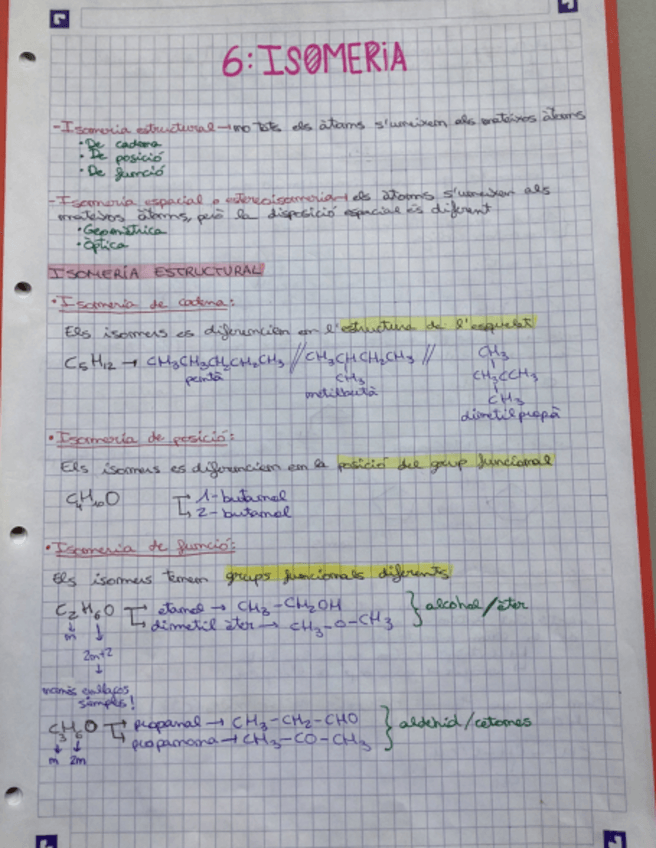 6: ISOMERIA
- Isomeria estructural → no tots els àtoms s'uneixen als mateixos àtoms
· De cadena
· De posició
· De funció
- Isomeria espacial o estereoisomeria → els àtoms s'uneixen als
mateixos àtoms, però la disposició espacial és diferent
· Geomètrica
· Òptica
ISOMERÍA ESTRUCTURAL
· Isomeria de cadena:
Els isomers es diferencien en l'estructura de l'esquelet
C₅H₁₂ → CH₃CH₂CH₂CH₂CH₃ // CH₃CHCH₂CH₃ // CH₃
pentà CH₃ CH₃CCH₃
metilbutà CH₃
dimetilpropà
· Isomeria de posició:
Els isomers es diferencien en la posició del grup funcional
C₄H₁₀O → 1-butanol
↳ 2-butanol
· Isomeria de funció:
Els isomers tenen grups funcionals diferents
C₂H₆O → etanol → CH₃-CH₂OH } alcohol/èter
↳ dimetil èter → CH₃-O-CH₃
↓ ↓
n 2n+2
↓
només enllaços
simples!
C₃H₆O → propanal → CH₃-CH₂-CHO } aldehid/cetones
↳ propanona → CH₃-CO-CH₃
↓ ↓
n 2n